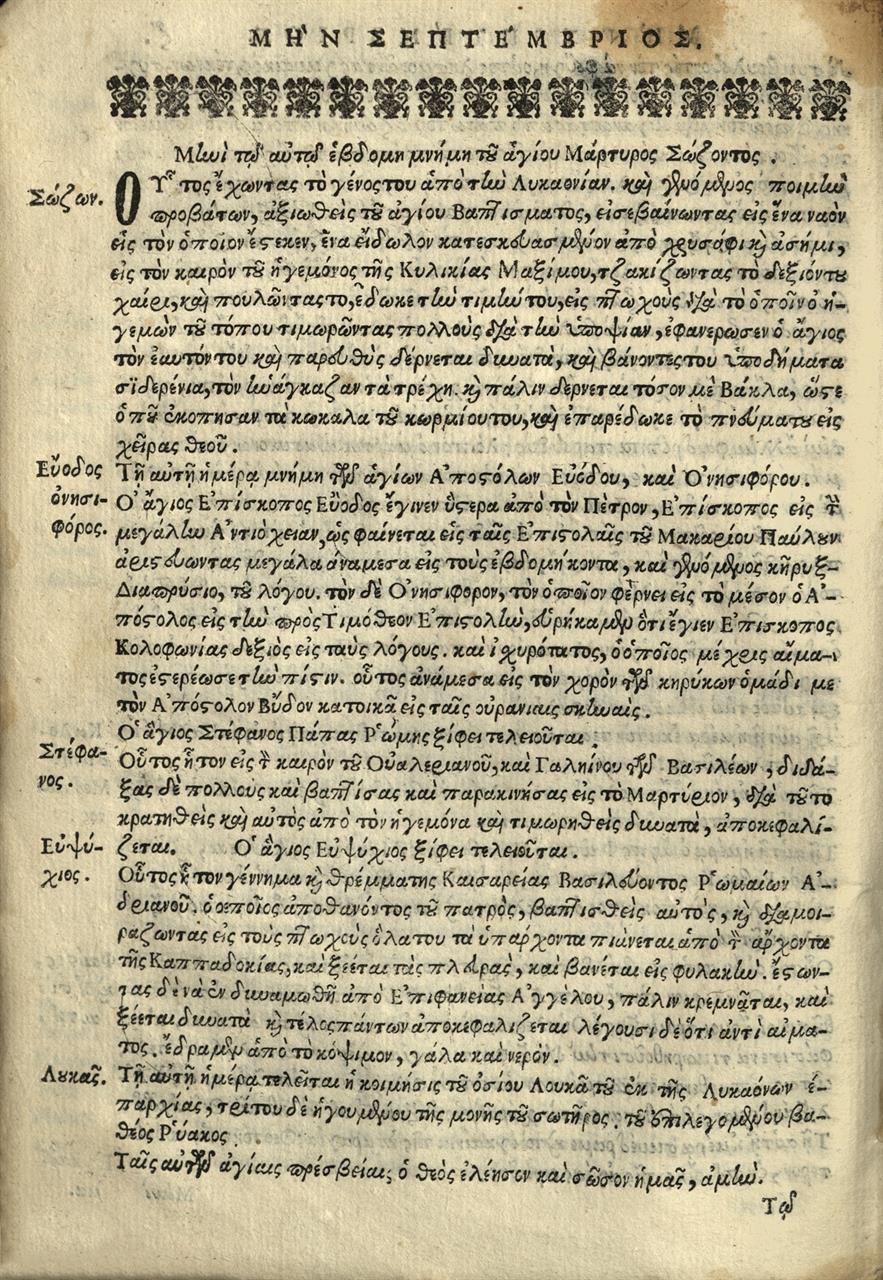 ΜΗῚΝ ΣΕΠΤΕΜΒΡΙΟΣ.
Μηνὶ τῷ αὐτῷ ἑβδομη μνήμη τοῦ ἁγίου Μάρτυρος Σώζοντος.
Σώζων.
Οὗτος ἔχωντας τὸ γένοςτου ἀπὸ τὴν Λυκαονίαν. καὶ γενόμενος ποιμὴν
προβάτων, ἀξιωθεὶς τοῦ ἁγίου Βαπτίσματος, εἰσεβαίνωντας εἰς ἕνα ναὸν
εἰς τὸν ὁποῖον ἔστεκεν, ἕνα εἴδωλον κατεσκευασμένον ἀπὸ χρυσάφι καὶ ἀσήμι,
εἰς τὸν καιρὸν τοῦ ἡγεμόνος τῆς Κυλικίας Μαξίμου, τζακίζωντας τὸ δεξιόντου
χαίρι, καὶ πουλῶντας το, ἔδωκε τὴν τιμήν του, εἰς πτωχοὺς διὰ τὸ ὁποῖνο ἡ-
γεμὼν τοῦ τόπου τιμωρῶντας πολλοὺς διὰ τὴν ὑποψίαν, ἐφανερωσεν ὁ ἅγιος
τὸν ἑαυτόν του καὶ παρευθὺς δέρνεται δυνατὰ, καὶ βάνοντές του ὑποδήματα
σϊδερένια, τὸν ἠνάγκαζαν τὰ τρέχη. καὶ πάλιν δέρνεται τόσον μὲ Βάκλα, ὥστε
ὁποῦ ἐκοπησαν τὰ κωκαλα τοῦ κωρμίου του, καὶ ἐπαρέδωκε τὸ πνεῦματου εἰς
χεῖρας θεοῦ.
Εὔοδος
ὀνησι-
φόρος.
Τῇ αὐτῇ ἡμέρᾳ μνήμη τῶν ἁγίων Ἀποστόλων Εὐόδου, καὶ Ὀνησιφόρου.
Ὁ ἅγιος Ἐπίσκοπος Εὔοδος ἔγινεν ὕστερα ἀπὸ τὸν Πέτρον, Ἐπίσκοπος εἰς τὴν
μεγάλην Ἀντιόχειαν, ὡς φαίνεται εἰς ταῖς Ἐπιστολαῖς τοῦ Μακαρίου Παύλου
ἀριστεύωντας μεγάλα ἀνάμεσα εἰς τοὺς ἑβδομήκοντα, καὶ γενόμενος κῆρυξ
Διαπρύσιο, τοῦ λόγου. τὸν δὲ Ὀνησιφορον, τὸν ὁποῖον φέρνει εἰς τὸ μέσον ὁ Ἀ-
πόστολος εἰς τὴν πρὸς Τιμόθεον Ἐπιστολὴν, εὑρήκαμεν ὅτι ἔγιεν Ἐπισκοπος
Κολοφωνίας δεξιὸς εἰς ταὺς λόγους. καὶ ἰχυρότατος, ὁ ὁποῖος μέχρις αἵμα-
τος ἐστερέωσε τὴν πίστιν. οὗτος ἀνάμεσα εἰς τὸν χορὸν τῶν κηρύκων ὁμάδι με
τὸν Ἀπόστολον Βὔδον κατοικᾶ εἰς ταῖς οὐρανίαις σκηναῖς.
Ὁ ἅγιος Στέφανος Πάπας Ῥώμης ξίφει τελειοῦται.
Στέφα-
νος.
Οὗτος ἦτον εἰς τὸν καιρὸν τοῦ Οὐαλεριανοῦ, καὶ Γαληίνου τῶν Βασιλέων, διδά-
ξας δὲ πολλοὺς καὶ βαπτίσας καὶ παρακινήσας εἰς τὸ Μαρτύριον, διὰ τοῦτο
κρατηθεὶς καὶ αὐτὸς ἀπὸ τὸν ἡγεμόνα καὶ τιμωρηθεὶς δυνατὰ, ἀποκεφαλί-
ζεται. Ὁ ἅγιος Εὐψύχιος ξίφει τελειοῦται.
Εὐψύ-
χιος.
Οὗτος ἦτον γέννημα καὶ θρέμμα τῆς Καισαρείας Βασιλεύοντος Ῥωμαίων Ἀ-
δριανοῦ. ὁ ὁποῖος ἀποθανόντος τοῦ πατρὸς, βαπτισθεὶς αὐτὸς, καὶ διαμοι-
ραζωντας εἰς τοὺς πτωχοὺς ὅλα του τὰ ὑπάρχοντα πιάνεται ἀπὸ τὸν ἄρχοντα
τῆς Καππαδοκίας, καὶ ξέεται τὰς πλευρὰς, καὶ βανέται εἰς φυλακὴν. ἔστων-
τας δὲ νὰ ἐνδυναμωθῆ ἀπὸ Ἐπιφανείας Ἀγγέλου, πάλιν κρεμνᾶται, καὶ
ξέεται δυνατὰ καὶ τέλος πάντων ἀποκεφαλιζεται λέγουσι δὲ ὅτι ἀντὶ αἵμα-
τος. ἔδραμεν ἀπὸ τὸ κόψιμον, γάλα καὶ νερόν.
Λουκᾶς.
Τῇ αὐτῇ ἡμέρᾳ τελεῖται ἡ κοιμησις τοῦ ὁσίου Λουκᾶ τοῦ ἐκ τῆς Λυκαόνων ἐ-
παρχίας, τρίτου δὲ ἡγουμένου τῆς μονῆς τοῦ σωτῆρος. τοῦ ἐπιλεγομένου βα-
θέος Ῥύακος
Ταῖς αὐτῶν ἁγίαις πρέσβείαις ὁ θεὸς ἐλέησον καὶ σῶσον ἡμᾶς, ἀμήν.
Τῷ